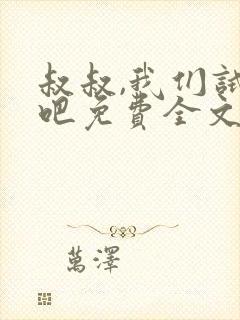 叔叔,我们试
吧免费全文
萬澤